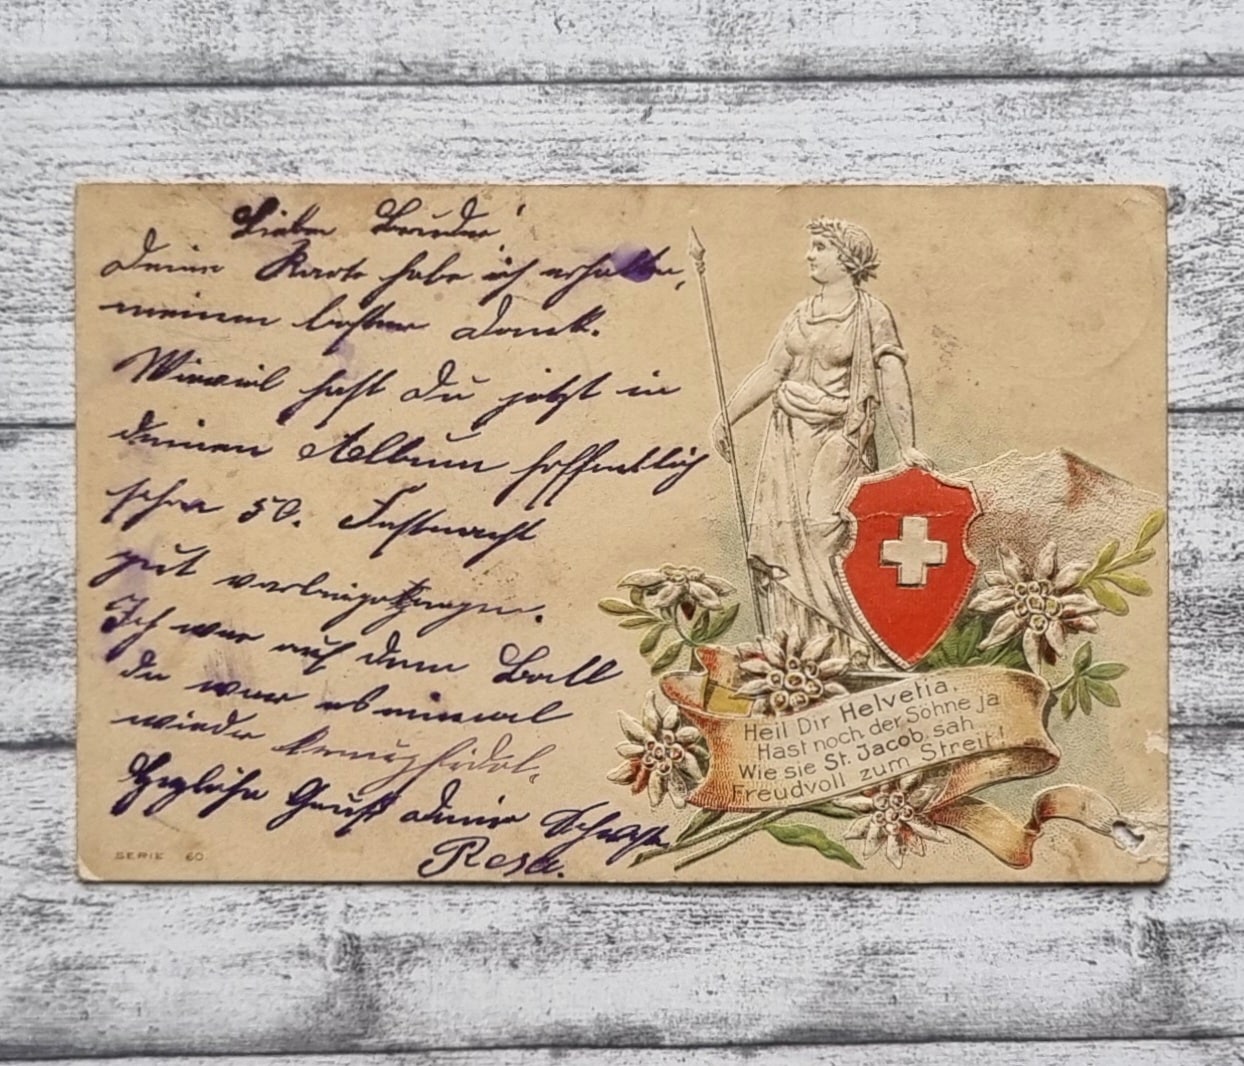 Lieber Bruder!
Deine Karte habe ich erhalten,
meinen besten Dank.
Wieviel hast Du jetzt in
deinem Album hoffentlich
schon 50. Fastnacht
gut vorbeigegangen.
Ich war auf dem Ball
da war es einmal
wieder kreuzfidel.
Herzliche Gruß deine Schwester
Rosa.
Heil Dir Helvetia,
Hast noch der Söhne ja
Wie sie St. Jacob, sah
Freudvoll zum Streit!
SERIE 60